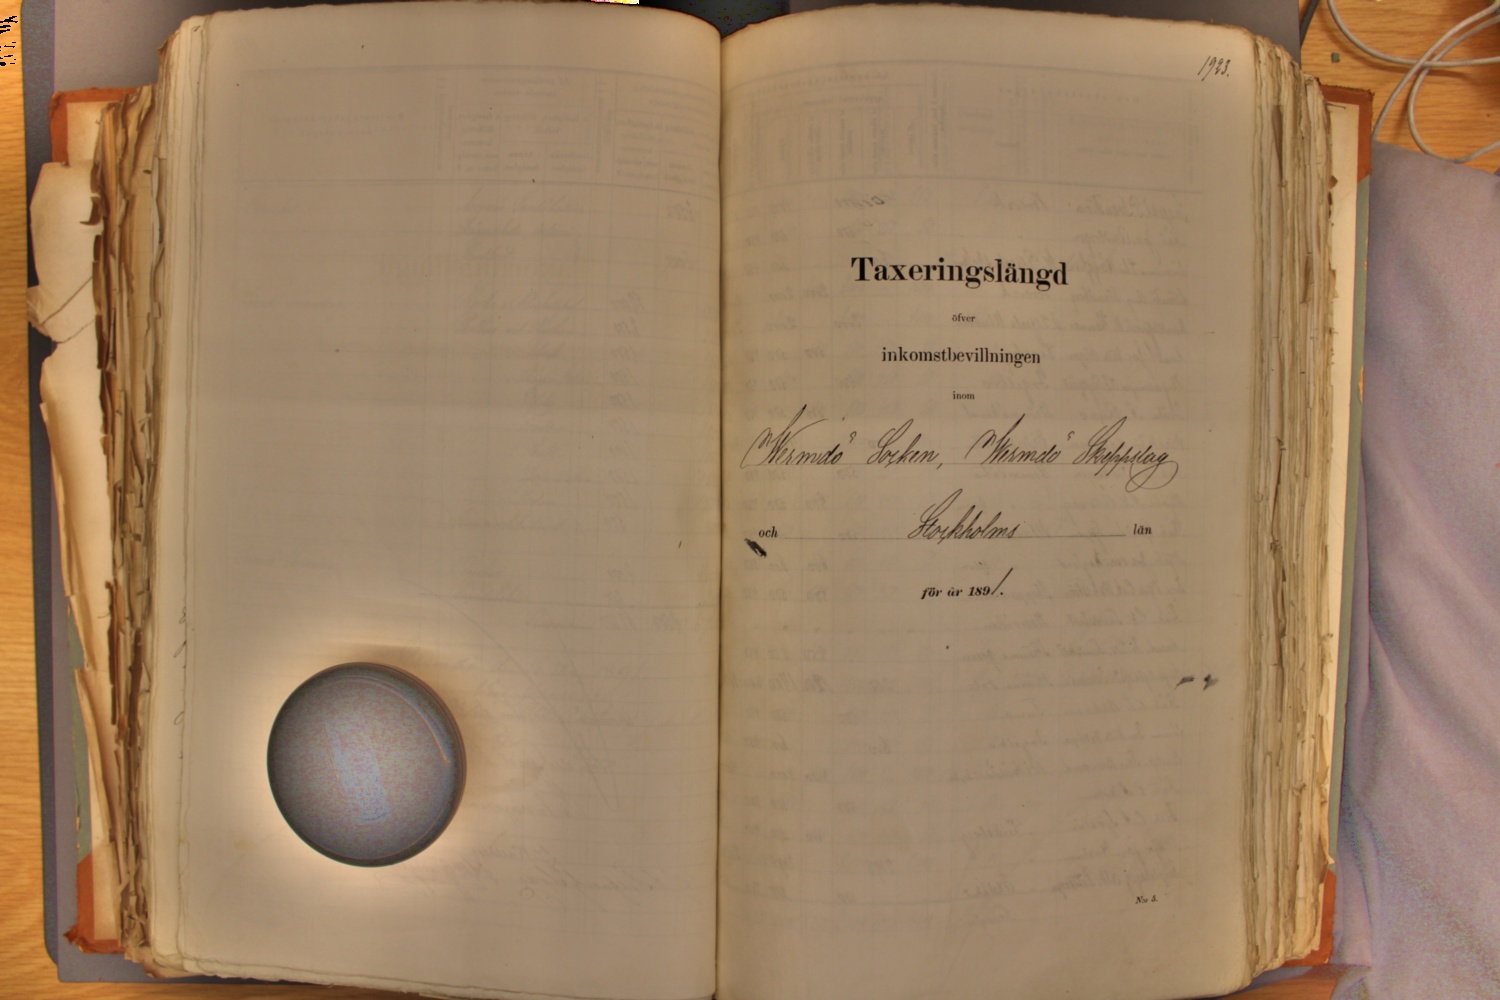 1923.
Taxeringslängd
öfver
inkomstbevillningen
inom
Wermdö Socken, Wermdö Skeppslag
och Stockholms län
för år 1891.
N:o 3.